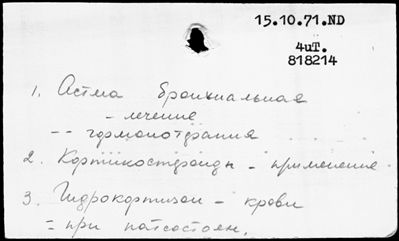 15.10.71.ND
4иТ.
818214
1. Астма бронхиальная
- лечение
-- гормонотерапия
2. Кортикостероиды - применение
3. Гидрокортизон - крови
= при патсостоян.